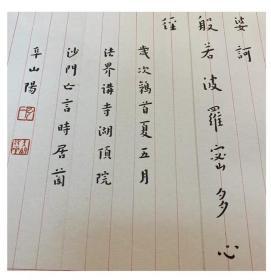 娑訶
般若波羅蜜多心
經
歲次鶉首夏五月
法界講寺湖頂院
沙門亡言時居
山陽